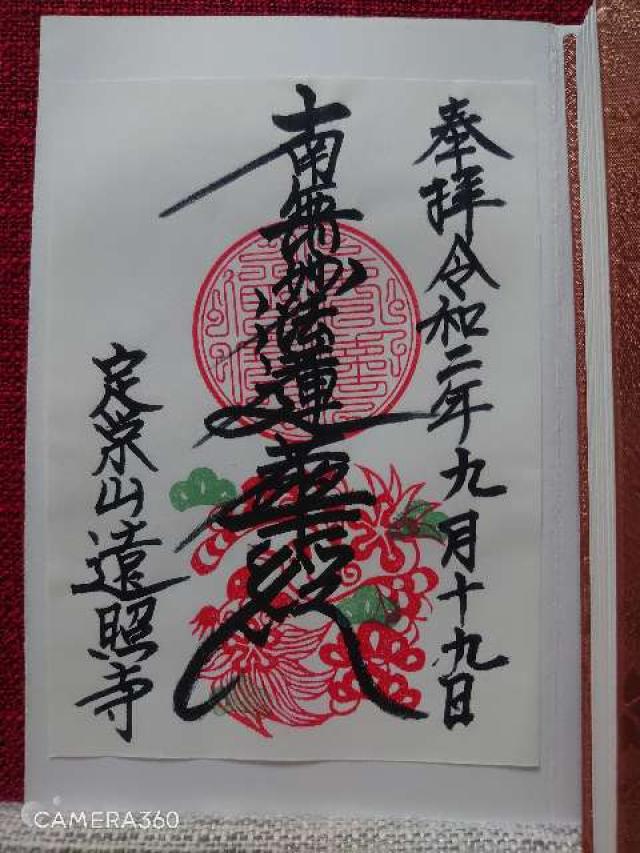 奉拝 令和二年九月十九日
南無妙法蓮華経
定栄山 遠照寺
CAMERA360